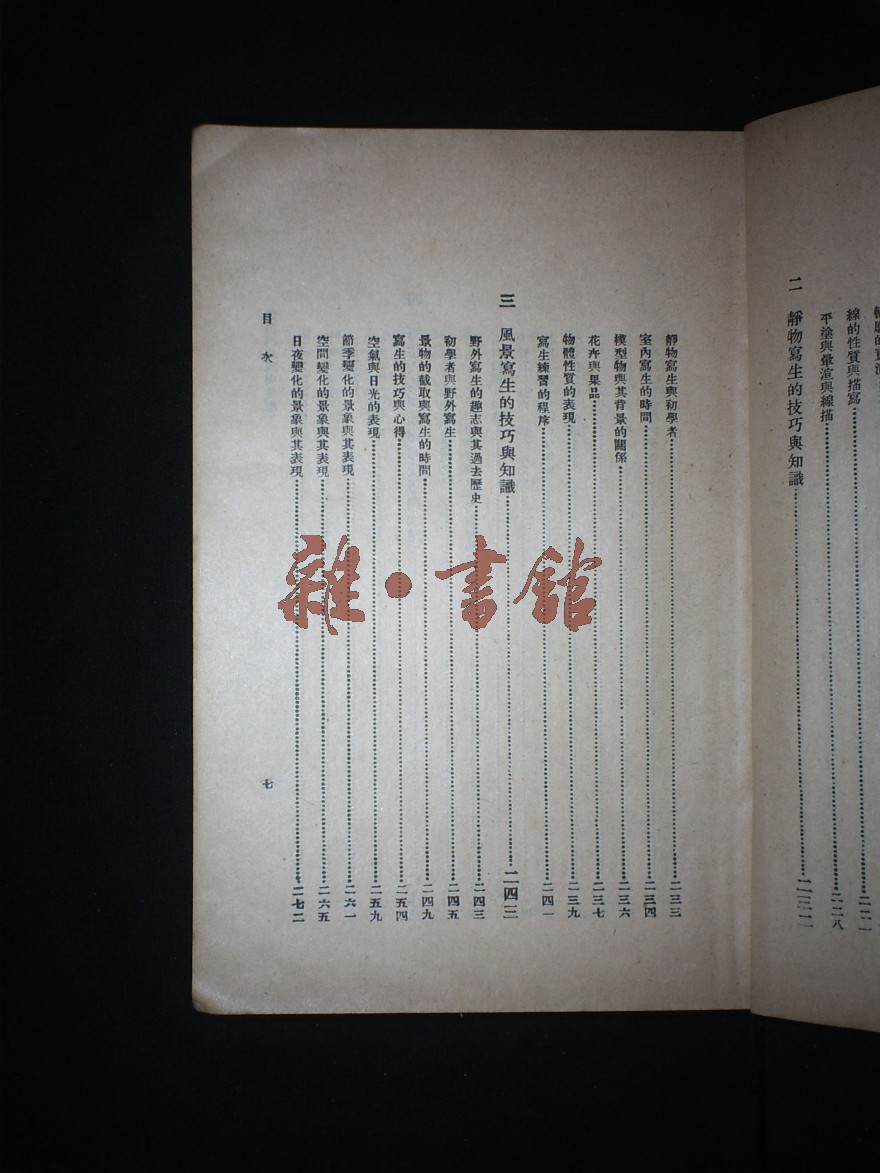 線的性質與描寫
平塗與暈渲與線描⋯⋯二二八
二 靜物寫生的技巧與知識⋯⋯二三二
靜物寫生與初學者⋯⋯二三三
室內寫生的時間⋯⋯二三四
模型物與其背景的關係⋯⋯二三六
花卉與果品⋯⋯二三七
物體性質的表現⋯⋯二三九
寫生練習的程序⋯⋯二四一
三 風景寫生的技巧與知識⋯⋯二四三
野外寫生的趣志與其過去歷史⋯⋯二四三
初學者與野外寫生⋯⋯二四五
景物的截取與寫生的時間⋯⋯二四九
寫生的技巧與心得⋯⋯二五四
空氣與日光的表現⋯⋯二五九
節季變化的景象與其表現⋯⋯二六一
空間變化的景象與其表現⋯⋯二六五
日夜變化的景象與其表現⋯⋯二七二
目次 七
雜·書館